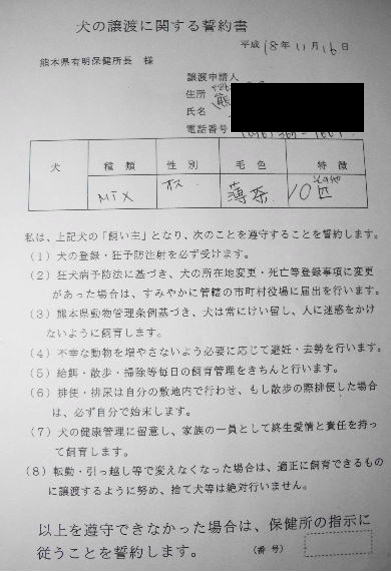 犬の譲渡に関する誓約書
平成18年11月16日
熊本県有明保健所長 様
譲渡申請人
住所 熊
氏名
電話番号
犬 種類 性別 毛色 特徴
MIX オス 薄茶 10匹
私は、上記犬の「飼い主」となり、次のことを遵守することを誓約します。
(1)犬の登録・狂予防注射を必ず受けます。
(2)狂犬病予防法に基づき、犬の所在地変更・死亡等登録事項に変更
があった場合は、すみやかに管轄の市町村役場に届出を行います。
(3)熊本県動物管理条例基づき、犬は常にけい留し、人に迷惑をかけ
ないように飼育します。
(4)不幸な動物を増やさないよう必要に応じて避妊・去勢を行います。
(5)給餌・散歩・掃除等毎日の飼育管理をきちんと行います。
(6)排便・排尿は自分の敷地内で行わせ、もし散歩の際排便した場合
は、必ず自分で始末します。
(7)犬の健康管理に留意し、家族の一員として終生愛情と責任を持っ
て飼育します。
(8)転勤・引っ越し等で変えなくなった場合は、適正に飼育できるもの
に譲渡するように努め、捨て犬等は絶対行いません。
以上を遵守できなかった場合は、保健所の指示に
従うことを誓約します。
(番号)